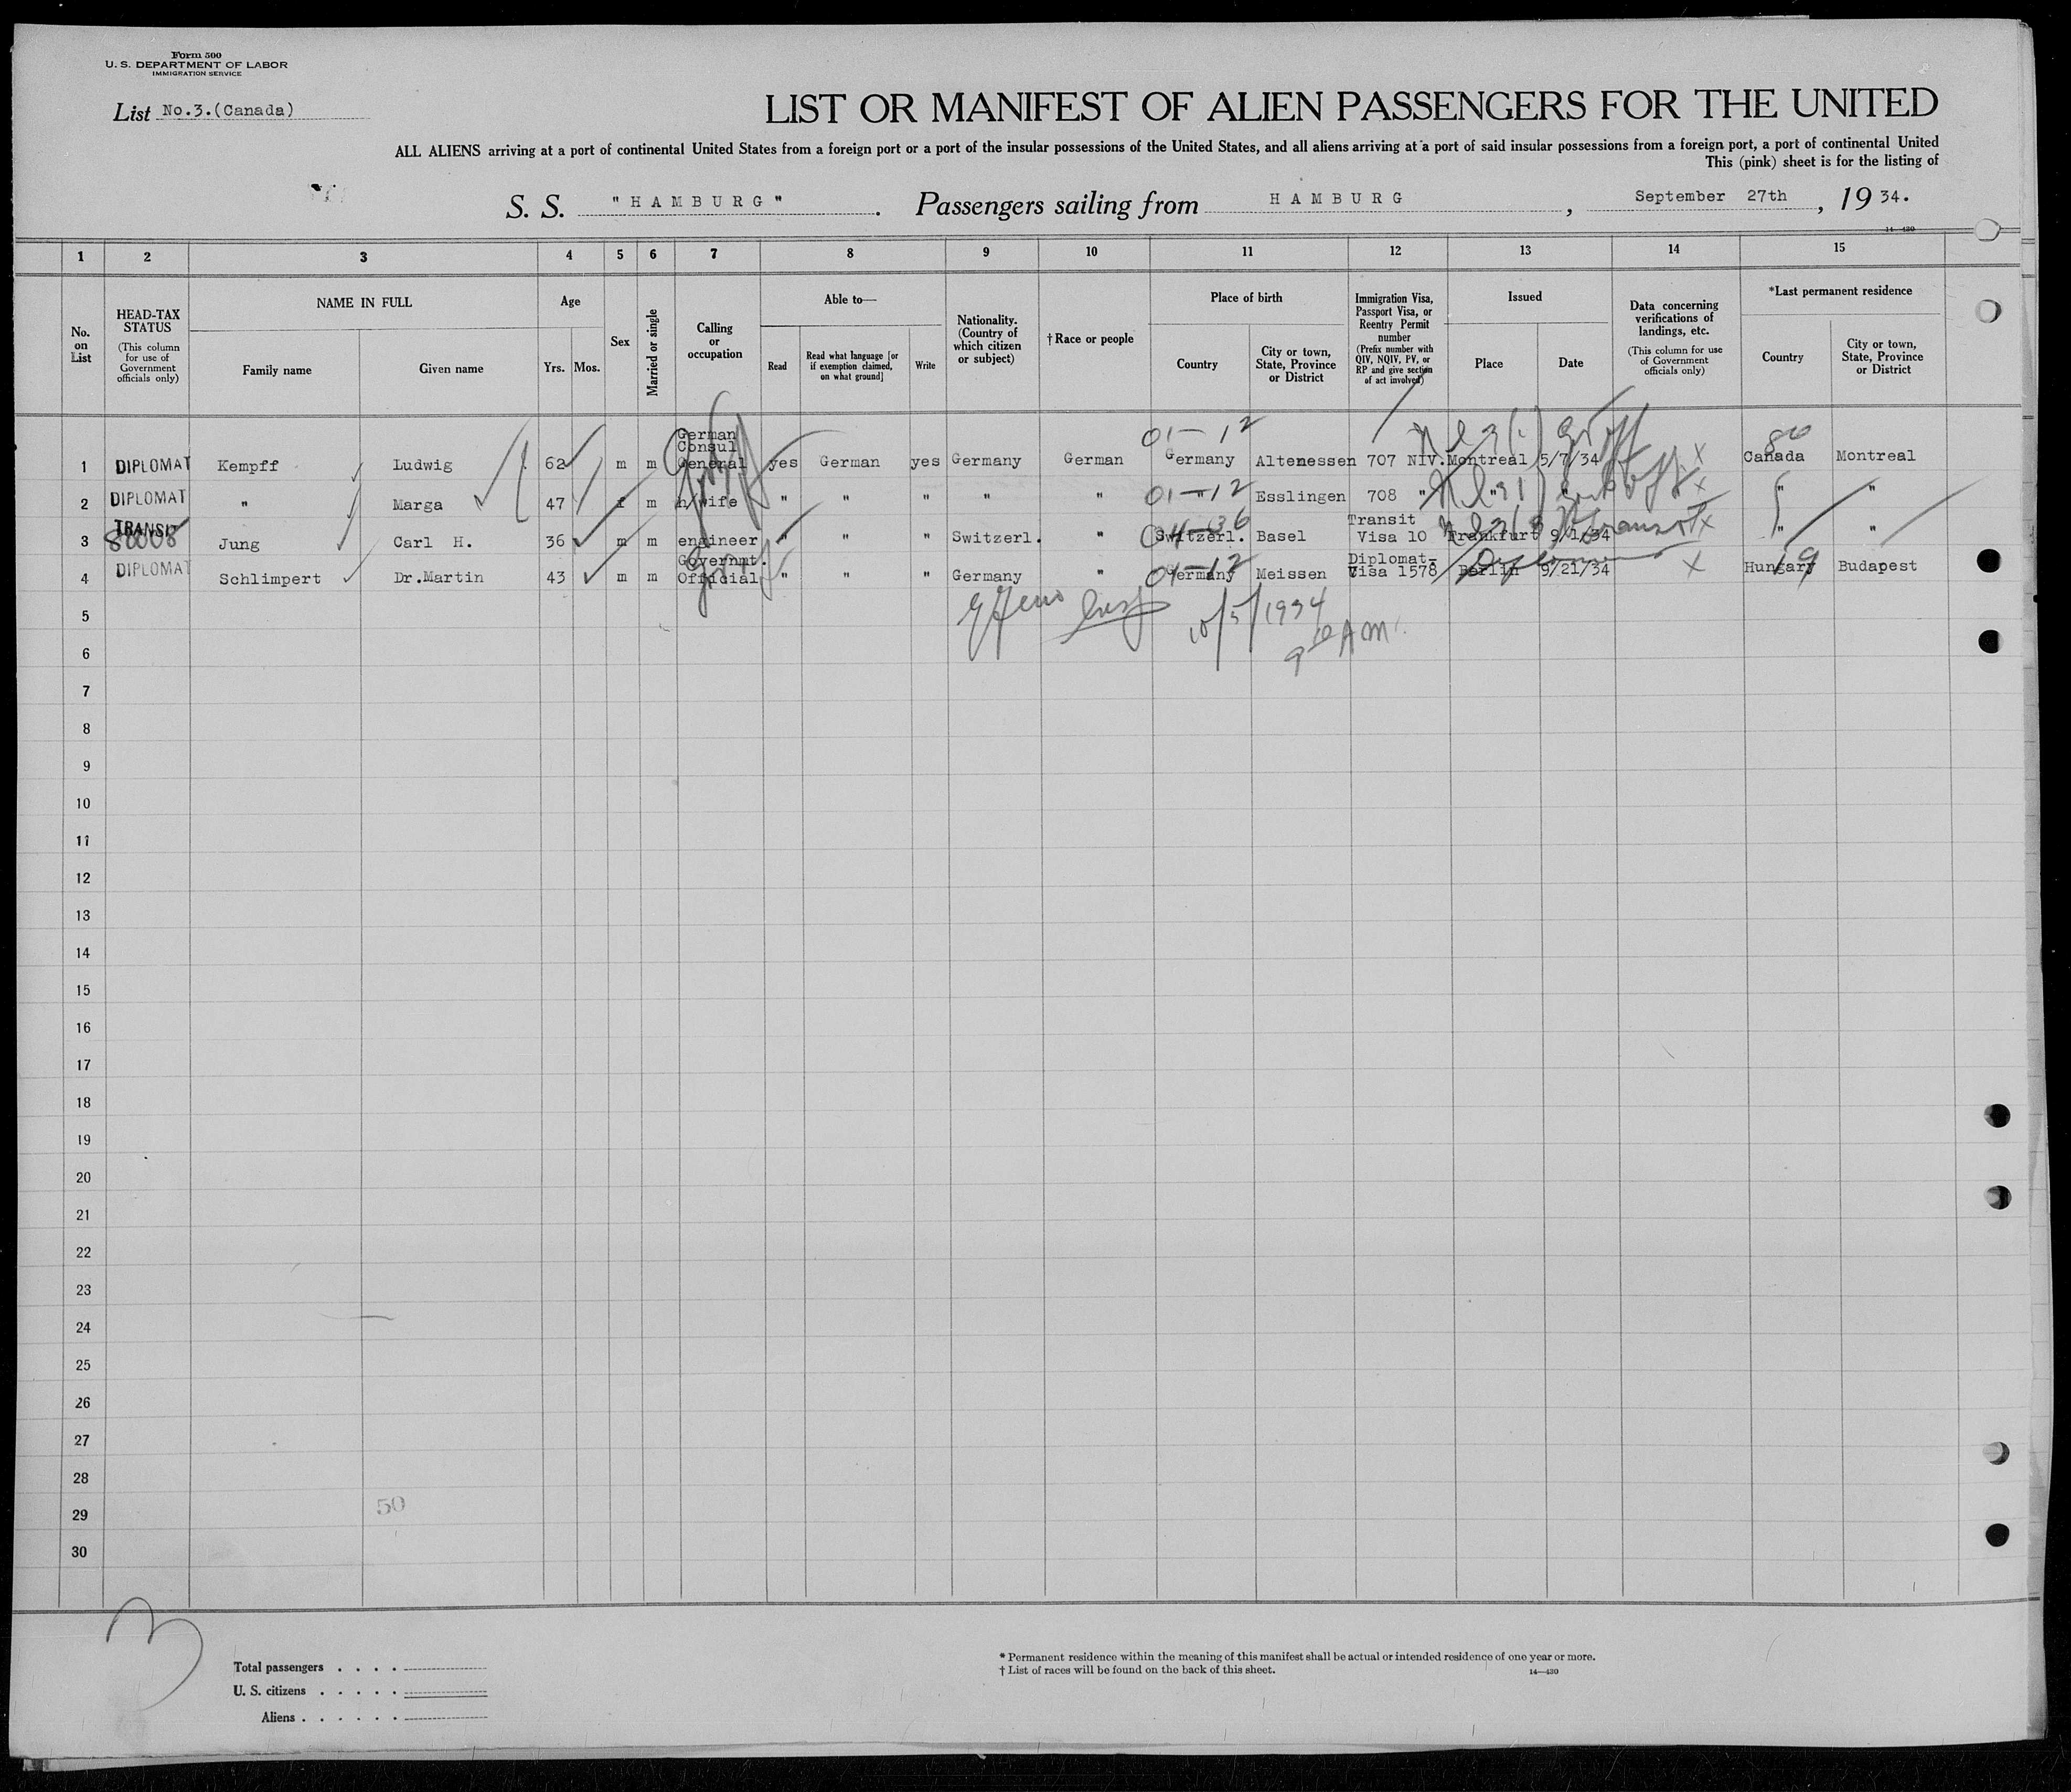 Form 500
U. S. DEPARTMENT OF LABOR
IMMIGRATION SERVICE
List No.3.(Canada)
LIST OR MANIFEST OF ALIEN PASSENGERS FOR THE UNITED
ALL ALIENS arriving at a port of continental United States from a foreign port or a port of the insular possessions of the United States, and all aliens arriving at a port of said insular possessions from a foreign port, a port of continental United
This (pink) sheet is for the listing of
S. S. "HAMBURG". Passengers sailing from HAMBURG, September 27th, 1934.
14—430
1 2 3 4 5 6 7 8 9 10 11 12 13 14 15
No. on List
HEAD-TAX STATUS
(This column for use of Government officials only)
NAME IN FULL
Family name
Given name
Age
Yrs. Mos.
Sex
Married or single
Calling or occupation
Able to—
Read
Read what language [or if exemption claimed, on what ground]
Write
Nationality. (Country of which citizen or subject)
†Race or people
Place of birth
Country
City or town, State, Province or District
Immigration Visa, Passport Visa, or Reentry Permit number
(Prefix number with QIV, NQIV, PV, or RP and give section of act involved)
Issued
Place
Date
Data concerning verifications of landings, etc.
(This column for use of Government officials only)
*Last permanent residence
Country
City or town, State, Province or District
01-12
80
1 DIPLOMAT Kempff Ludwig 62 m m German Consul General yes German yes Germany German Germany Altenessen 707 NIV. Montreal 5/7/34 x Canada Montreal
2 DIPLOMAT " Marga 47 f m h/wife " " " " " 01-12 " Esslingen 708 " " " x " "
3 TRANSIT 80008 Jung Carl H. 36 m m engineer " " " Switzerl. " 04-36 Switzerl. Basel Transit Visa 10 Frankfurt 9/1/34 transit x " "
4 DIPLOMAT Schlimpert Dr.Martin 43 m m Governmt. Official " " " Germany " 01-12 Germany Meissen Diplomat- Visa 1578 Berlin 9/21/34 x Hungary 19 Budapest
10/5/1934
5
AM
6
7
8
9
10
11
12
13
14
15
16
17
18
19
20
21
22
23
24
25
26
27
28
29 50
30
3
Total passengers . . . .
U. S. citizens . . . . .
Aliens . . . . . .
* Permanent residence within the meaning of this manifest shall be actual or intended residence of one year or more.
† List of races will be found on the back of this sheet.
14—430